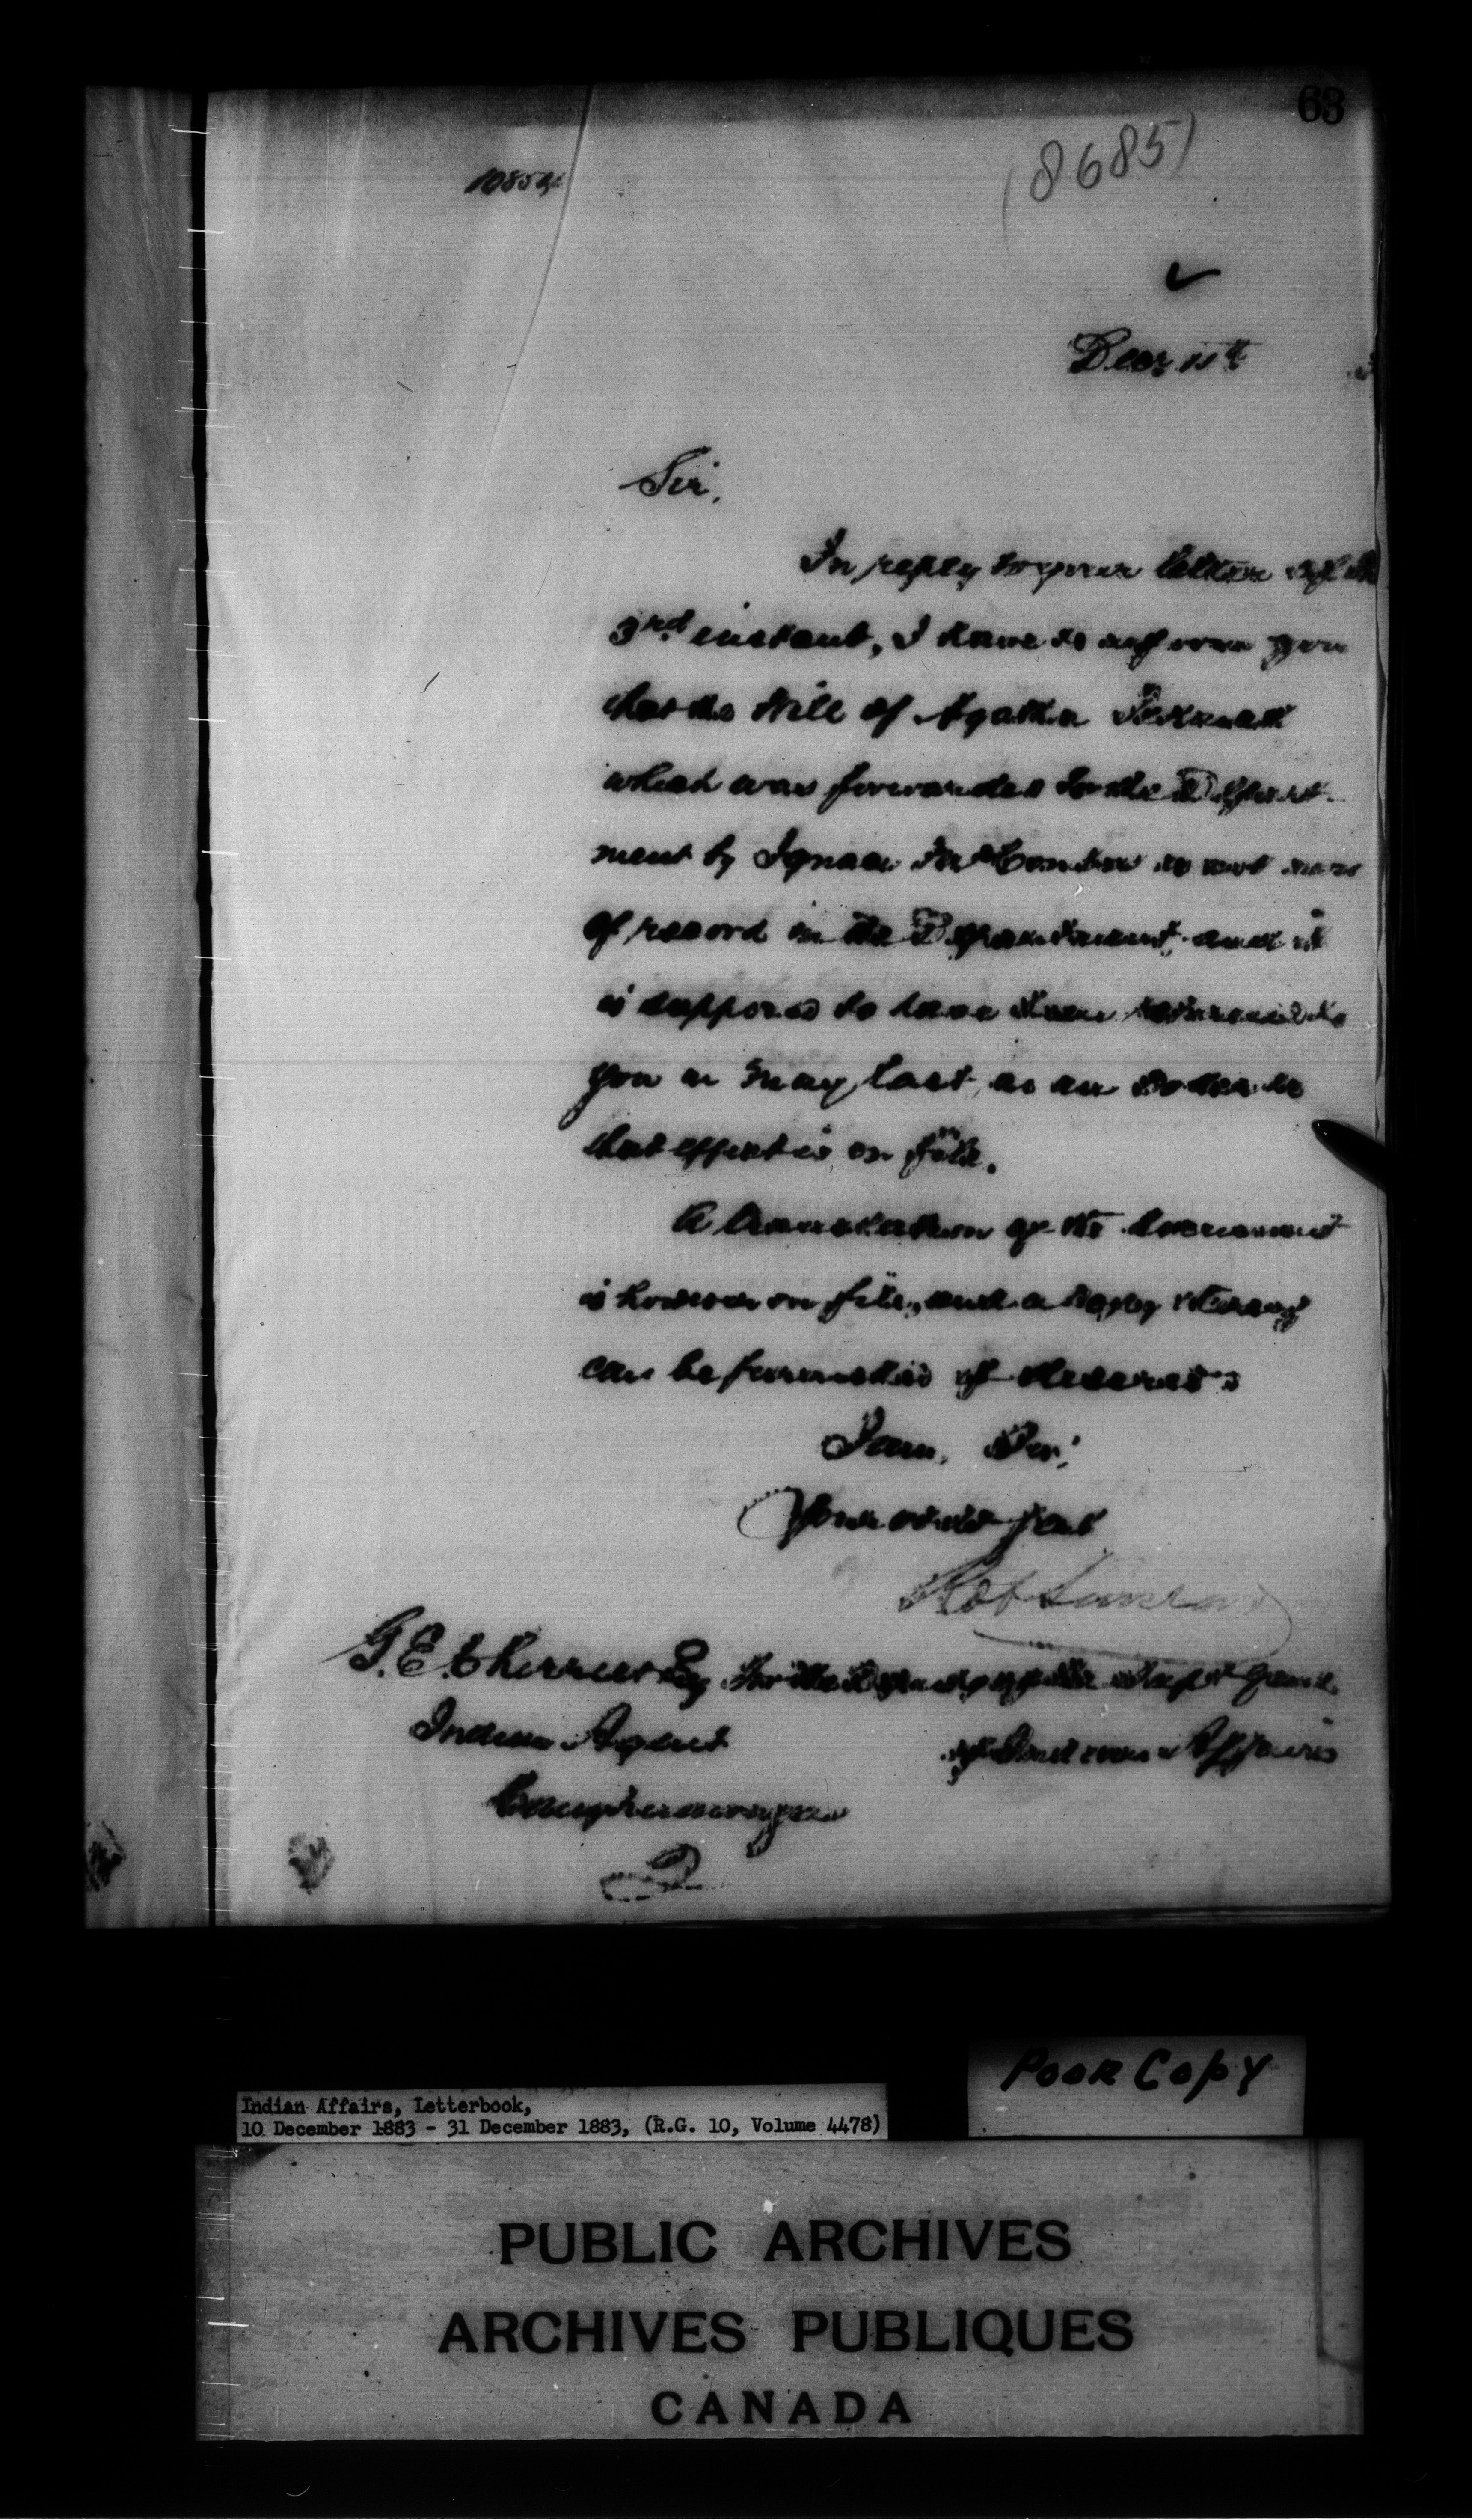 63
(8685)
Decr 11th
Sir,
In reply to your letter of the
3rd instant, I have to inform you
that the Will of Agatha
which was forwarded to the Depart-
ment by Ignace is not now
of record in the Department and it
is supposed to have been returned to
you in May last, as an to
that effect is on file.
A translation of the document
is however on file, and a copy thereof
can be furnished if desired.
I am, Sir,
Your obedt Servt
G. E. Cherrier Esq for the Deputy of the Supt Genl
Indian Agent of Indian Affairs
Caughnawaga
Poor Copy
Indian Affairs, Letterbook,
10 December 1883 - 31 December 1883, (R.G. 10, Volume 4478)
PUBLIC ARCHIVES
ARCHIVES PUBLIQUES
CANADA